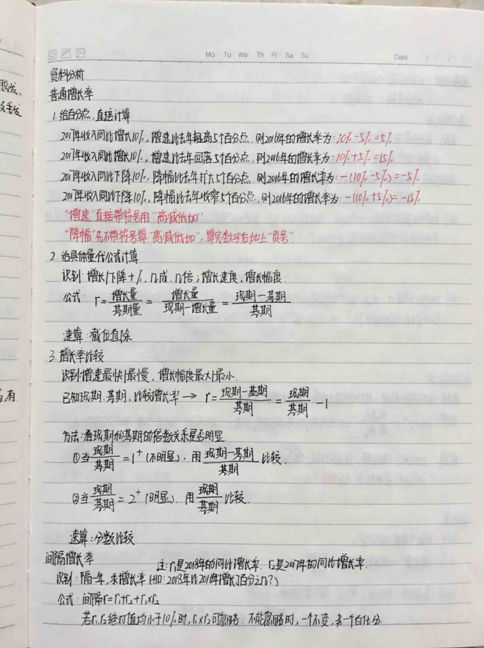 Mo Tu We Th Fr Sa Su
Date / /
资料分析
普通增长率
1. 给百分点, 直接计算
2017年收入同比增长10%, 增速比去年提高5个百分点, 则2016年的增长率为: 10%-5%=5%
2017年收入同比增长10%, 增速比去年回落5个百分点, 则2016年的增长率为: 10%+5%=15%
2017年收入同比下降10%, 降幅比去年扩大5个百分点, 则2016年的增长率为: -(10%-5%)=-5%
2017年收入同比下降10%, 降幅比去年收窄5个百分点, 则2016年的增长率为: -(10%+5%)=-15%
"增速"直接带符号用"高减低加"
"降幅"先不带符号算"高减低加", 算完数字后加上"负号"
2. 给具体量, 任公式计算
识别: 增长/下降+%, 几成, 几倍; 增长速度, 增长幅度
公式: r=增长量/基期量=增长量/现期-增长量=现期-基期/基期
速算: 截位直除
3. 增长率比较
识别: 增速最快/最慢, 增长幅度最大/最小
已知现期, 基期, 比较增长率 → r=现期-基期/基期=现期/基期-1
方法: 看现期和基期的倍数关系是否明显
①当现期/基期=1⁺(不明显), 用现期-基期/基期比较.
②当现期/基期=2⁺(明显), 用现期/基期比较.
速算: 分数比较
间隔增长率 注: r₁是2018年的同比增长率, r₂是2017年的同比增长率.
识别: 隔一年, 求增长率 (如: 2018年比2016年增长百分之几?)
公式: 间隔r=r₁+r₂+r₁×r₂
若r₁, r₂绝对值均小于10%时, r₁×r₂可忽略, 不能忽略时, 一个不变, 另一个百化分